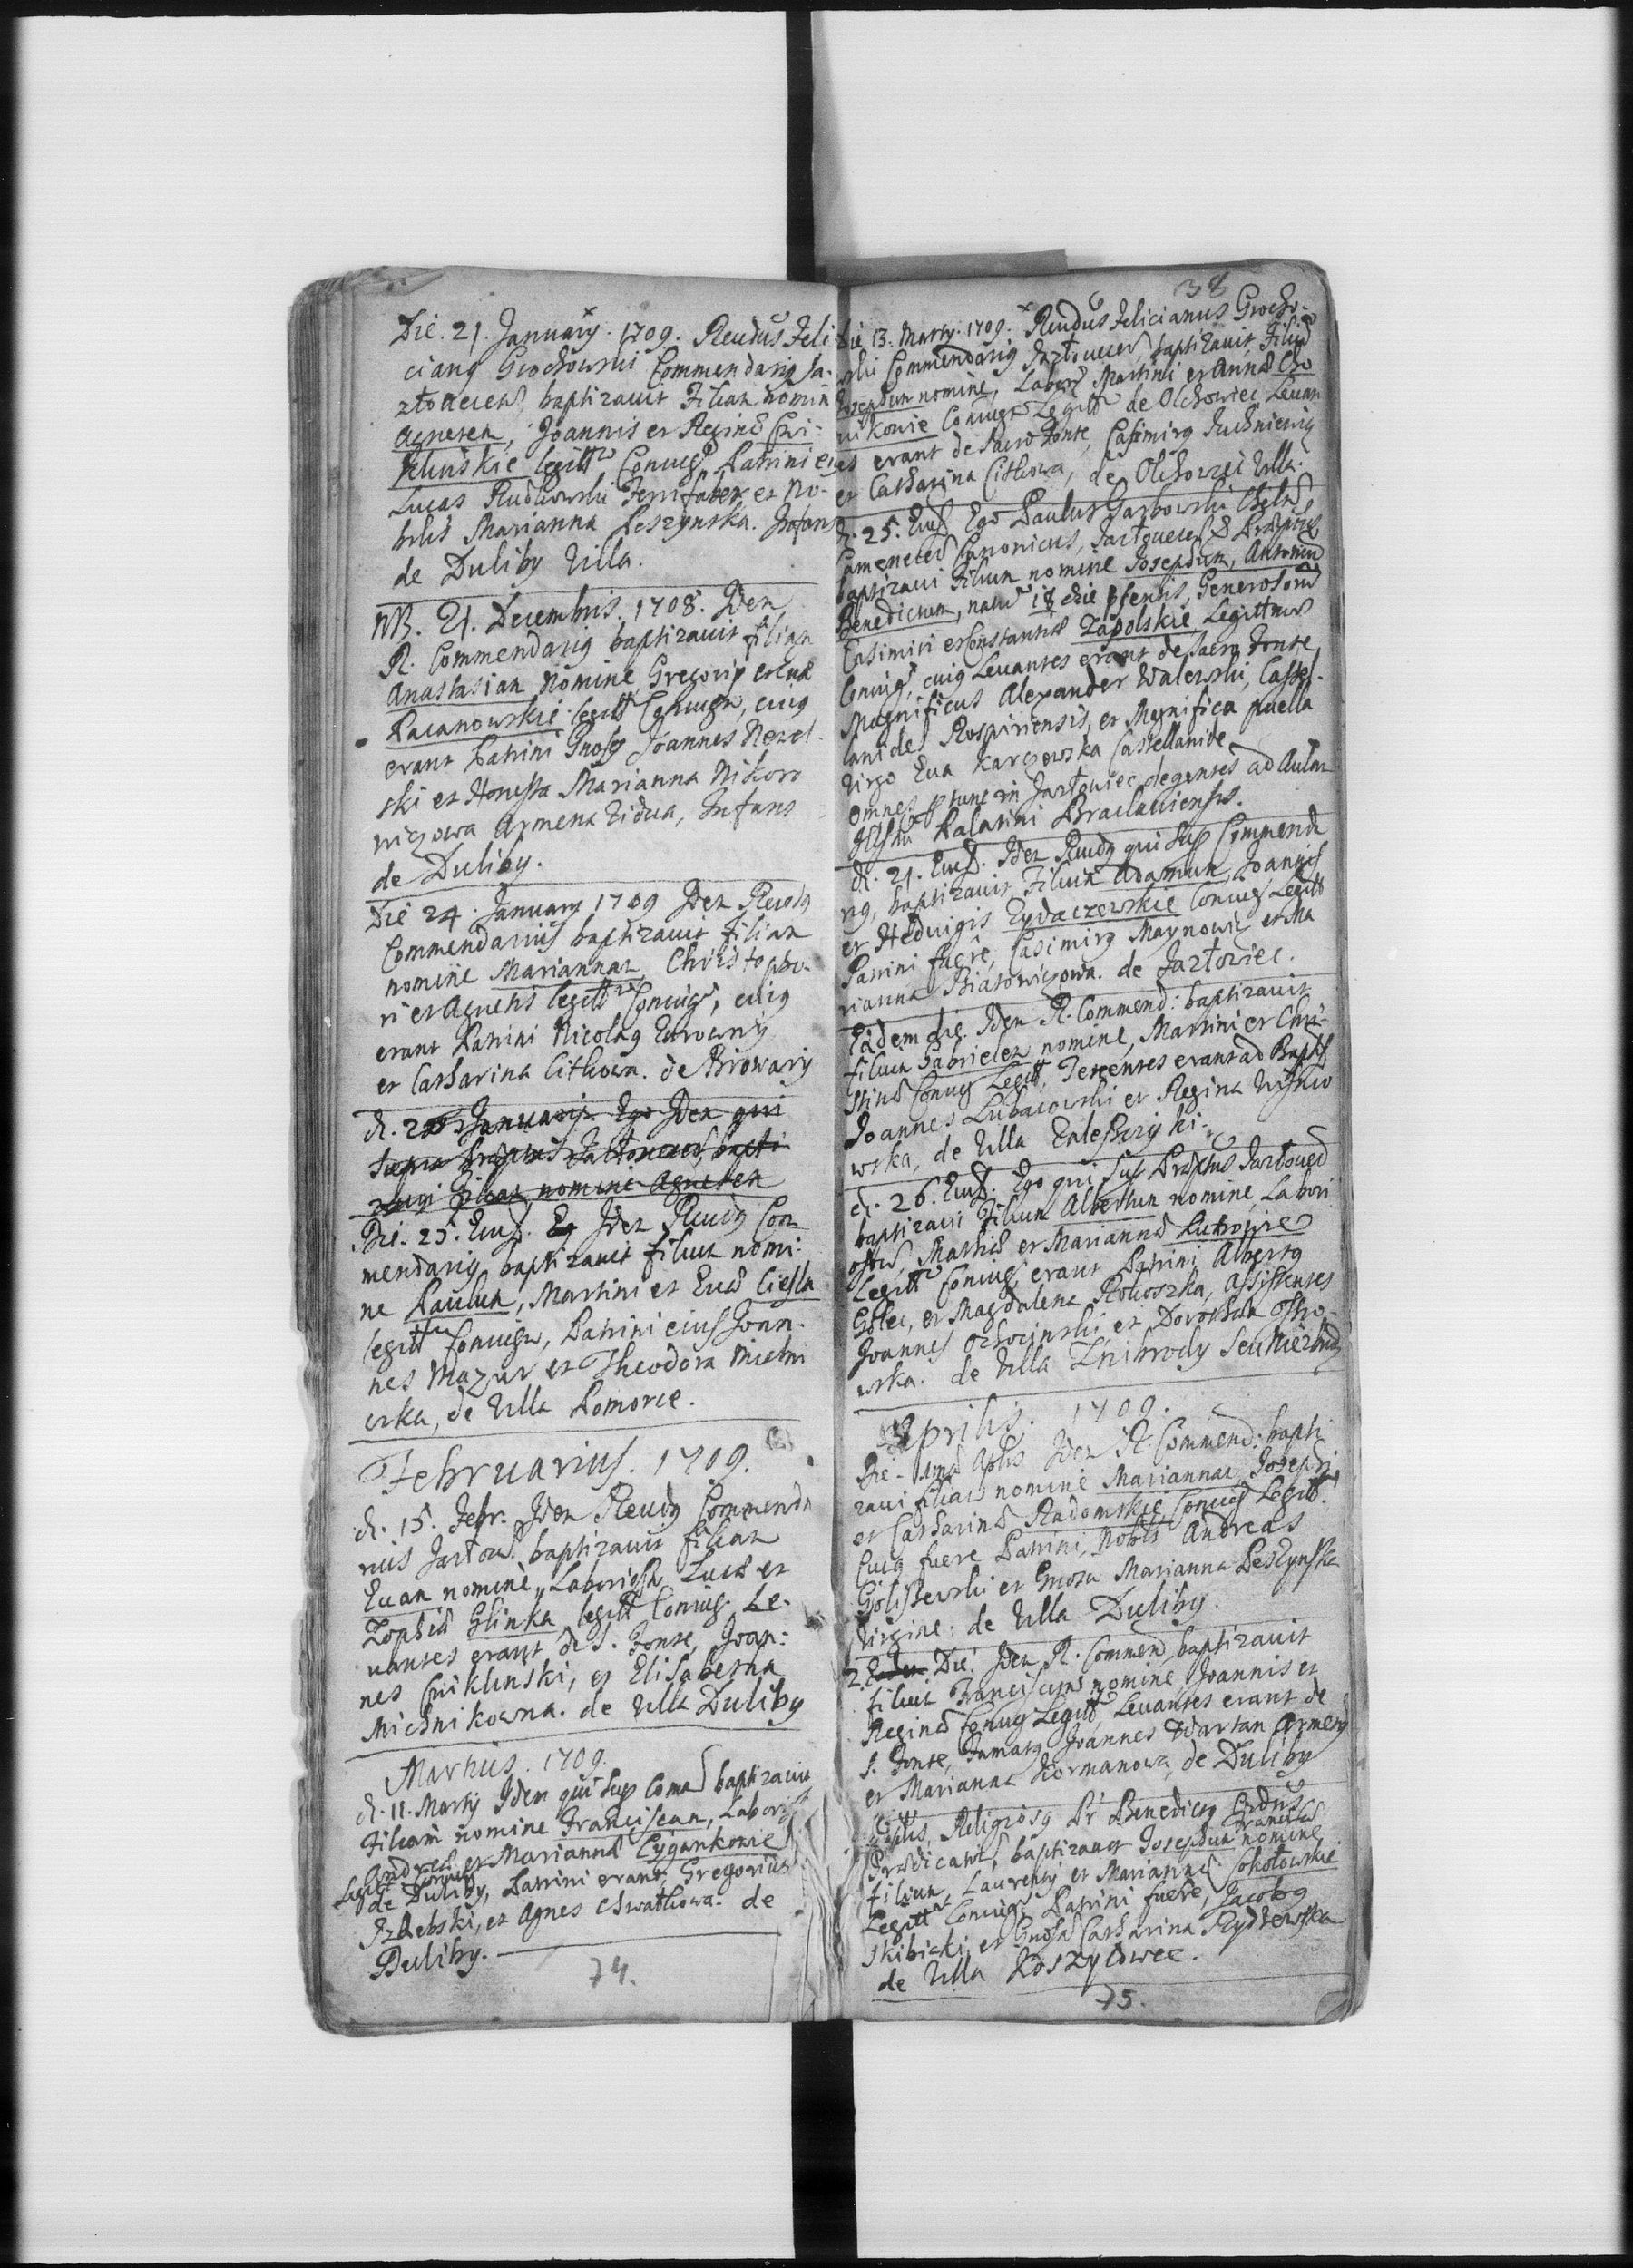 Die. 21. January. 1709. Rendus Feli
cianq Grochowski Commendariq Ja-
złovecen, baptizavit Filiam nomin
Agneten, Joannis et Reginæ Cwi-
klinskie legitt Coniugu Patrini eiq
Lucas Rudkowski Ferrifaber, et No-
bilis Marianna Leszynska. Infans
de Duliby Villa.
NB. 21. Decembris. 1708. Iden
R. Commendariq baptizavit filian
Anastasian Nomine, Gregorij et Evæ
Pacanowskie legitt Coniugu, cuiq
erant Patrini Gnosq Joannes Nezel-
ski et Honesta Marianna Nikoro
wiczowa Armena Vidua, Infans
de Duliby.
Die 24. January 1709 Iden Revdq
Commendarius baptizavit Filian
nomine Mariannam, Christopho-
ri et Agnetis legitt Coniugu, cuiq
erant Patrini Nicolaq
et Catharina Citkowa. de Browary
d. 25 Januarij Ego Iden qui
supra Præptus Jazlovecen, bapti
zavi filian nomine Agneten
Die. 25. Eiusd. Eg Iden Revdq Com
mendariq baptizavit filiun nomi-
ne Paulun, Martini et Evæ Ciesla
legitt Coniugu, Patrini eius Joan-
nes Mazur et Theodora Michni
wska, de Villa Pomorce.
Februarius. 1709.
d. 15. Febr. Iden Revdq Commenda
rius Jazłow. baptizavit filian
Evan nomine, Laborios Lucæ et
Zophiæ Glinka legitt Coniug. Le-
vantes erant de S. Fonte, Joan-
nes Cwiklinski, et Elisabetha
Michnikowna. de Villa Duliby
Martius. 1709.
d. 11. Martij Iden qui sup Comed baptizavit
Filiam nomine Franciscan, Laborios
Andreæ et Mariannæ Cygankowie
Legitt Coniug
de Duliby, Patrini erant, Gregorius
et Agnes Chwatkowa. de
Duliby.
74.
38
Die 13. Marty. 1709. Rendus Felicianus Grocho-
wski Commendariq Jazłovecen, baptizavit, Filiu
Josephun nomine, Labor Martini et Annæ Cho
nikowie Coniugu Legitt de Olchowiec Levan
tes erant de Sacro Fonte, Casimirq Juchniewiq
et Catharina Citkowa, de Olchowiec Villa.
d. 25. Eiusd Ego Paulus Garbowski Cheln
Camenecen Canonicus, Jazłovecen Præptus
baptizavi Filiun nomine Josephun, Antoniu
Benedictum, natu 18 die psentis, Generosoru
Casimiri et Constantiæ Zapolskie Legittimor
Coniug, cuiq Levantes erant de Sacro Fonte,
Magnificus Alexander Walewski, Castel-
lanides Rospiriensis, et Magnifica puella
Virgo Eva Karczowska Castellanide
omnes p tunc in Jazłowiec degentes ad Aulam
Illssmi Palatini Braclaviensis.
d. 21. Eiusd. Iden Revdq qui sup Commenda
riq, baptizavit Filiun Adamun, Joannis
et Hedvigis Rydaczewskie Coniug Legitt
Patrini fuere, Casimirq Maynowiq et Ma
rianna Białowiczowa. de Jazłowiec.
Eadem die. Iden R. Commend: baptizavit
filiun Gabrielen nomine, Martini et Chri-
stinæ Coniug Legitt, Tenentes erant ad Baptis
Joannes Lubacowski et Regina Wisnio
wska, de Villa Zaleszczyki.
d. 26. Eiusd. Ego qui sup Præptus Jazłoved
baptizavi Filiun Albertun nomine, Labori
osor, Mathiæ et Mariannæ
Legitt Coniug, erant Patrini Albertq
Golec, et Magdalena Rokoszka, Assistentes
Joannes Ochocinski et Dorothea Ostro-
wska. de Villa Znibrody seu
Aprilis. 1709.
Die - 1ma Aplis Iden R. Commend: bapti
zavi filian nomine Mariannam Josephi
et Catharinæ Radomskie Coniug Legitt.
Cuiq fuere Patrini, Nobls Andreas
Goliszewski et Gnosa Marianna Leszynska
Virgine: de Villa Duliby.
2. Eaden Die. Iden R. Commend baptizavit
filiun Franciscum nomine Joannis et
Reginæ Coniug Legitt, Levantes erant de
S. Fonte, Famatq Joannes Wartan Armenq
et Marianna Hormanowa, de Duliby
Aplis, Religiosq Pr Benedictq Ordis
Prædicator, baptizavit Josephun Franciscu nomine
filiun, Laurentij et Mariannæ Sokołowskie
Legitt Coniug Patrini fuere, Jacobq
Skibicki, et Gnosa Catharina Rydzewska
de Villa Koszyłowce.
75.